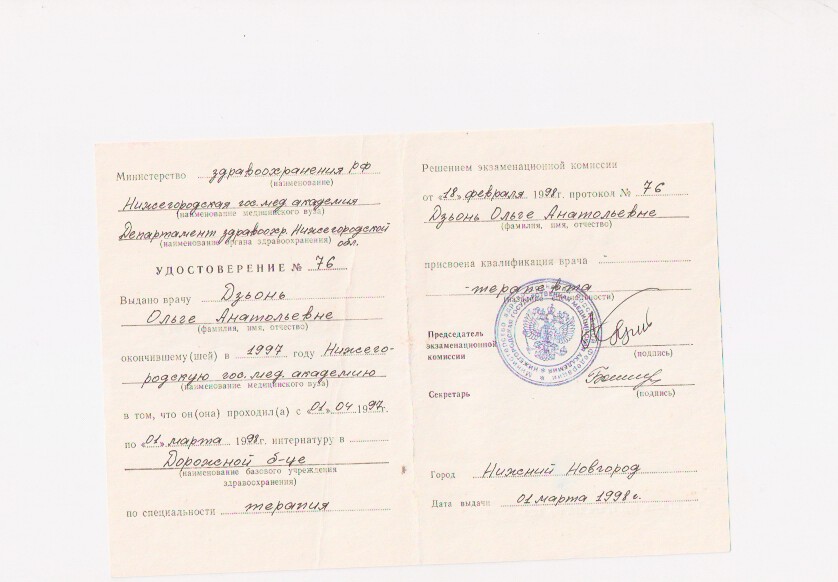 Министерство здравоохранения РФ
(наименование)
Нижегородская гос. мед. академия
(наименование медицинского вуза)
Департамент здравоохр. Нижегородской
(наименование органа здравоохранения) обл.
УДОСТОВЕРЕНИЕ № 76
Выдано врачу Дзьонь
Ольге Анатольевне
(фамилия, имя, отчество)
окончившему(шей) в 1997 году Нижего-
родскую гос. мед. академию
(наименование медицинского вуза)
в том, что он(она) проходил(а) с «01» 04 1997г.
по «01» марта 1998г. интернатуру в
Дорожной б-це
(наименование базового учреждения
здравоохранения)
по специальности терапия
Решением экзаменационной комиссии
от «18» февраля 1998г. протокол № 76
Дзьонь Ольге Анатольевне
(фамилия, имя, отчество)
присвоена квалификация врача
терапевта
Председатель
экзаменационной
комиссии
(подпись)
Секретарь
(подпись)
Город Нижний Новгород
Дата выдачи 01 марта 1998г.